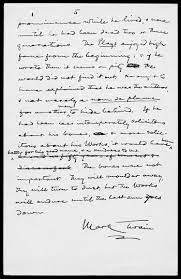 5
prominence while he lived, & none
until he had been dead two or three
generations. The Plays enjoyed high
fame from the beginning; & if he
wrote them it seems a pity the
world did not find it out. He ought to
have explained that he was the author,
& not merely a nom de plume
for another man to hide behind. If he
had been less intemperately solicitous
about his bones, & more solicitous
about his Works, it would have
been better for his good name, & a kindness to us.
The bones were not
important. They will moulder away,
they will turn to dust, but the Works
will endure until the last sun goes
down.
Mark Twain